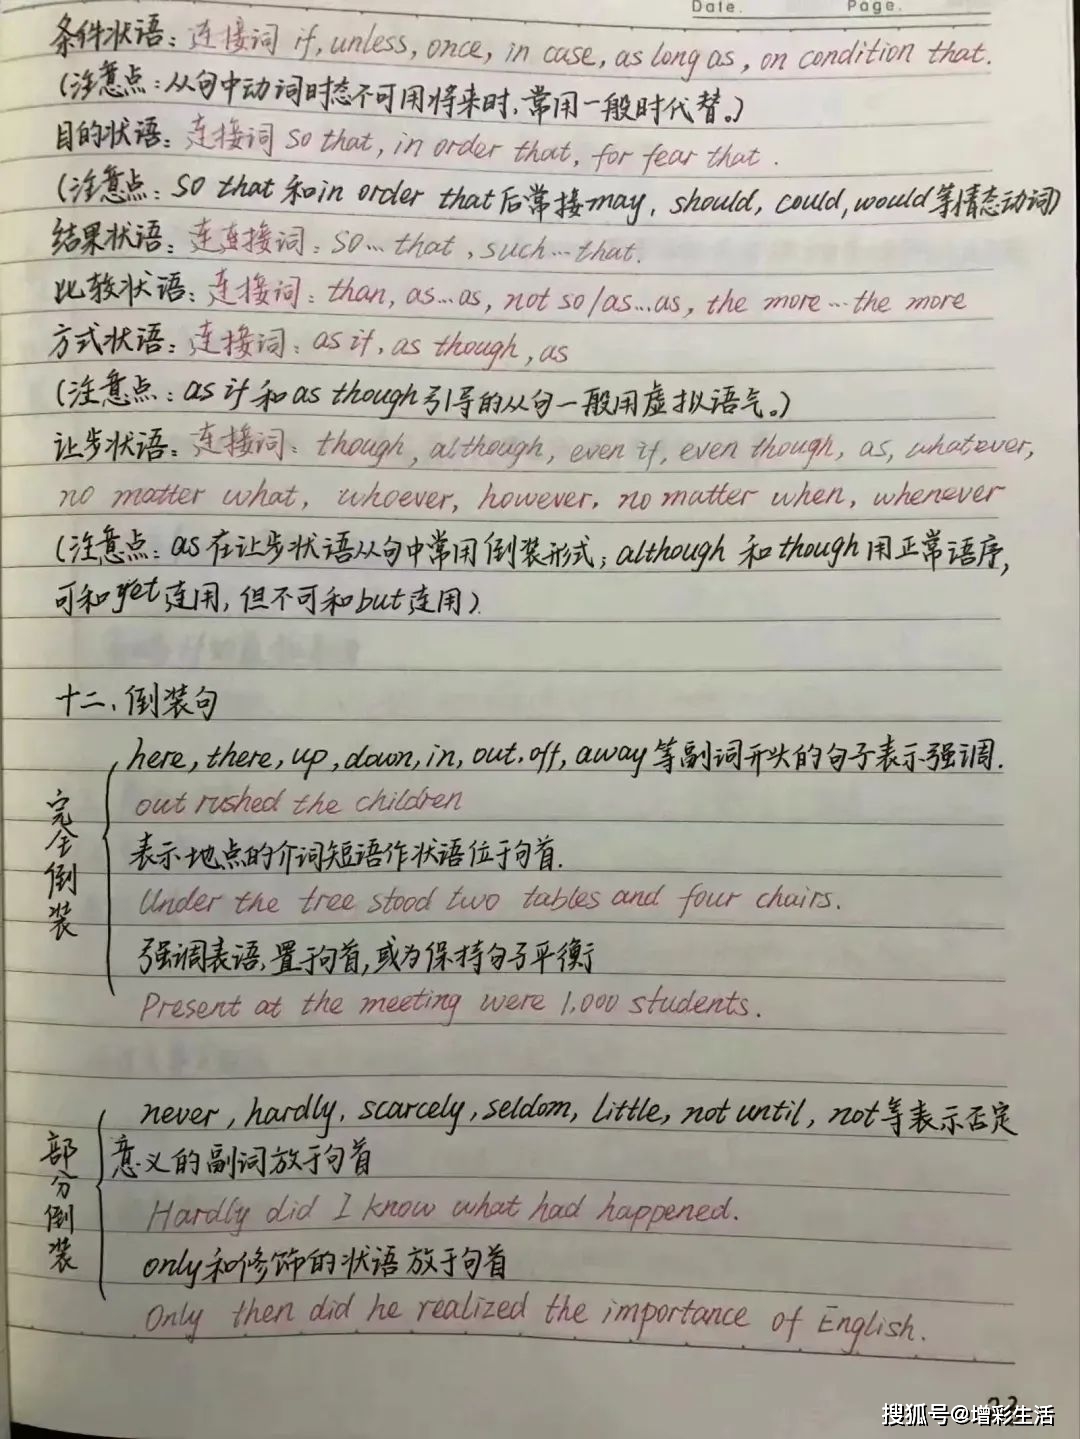 Date. Page.
条件状语：连接词 if, unless, once, in case, as long as, on condition that.
(注意点：从句中动词时态不可用将来时，常用一般时代替。)
目的状语：连接词 so that, in order that, for fear that.
(注意点：so that 和 in order that 后常接 may, should, could, would 等情态动词)
结果状语：连连接词：so… that, such… that.
比较状语：连接词：than, as…as, not so/as…as, the more…the more
方式状语：连接词：as if, as though, as
(注意点：as if 和 as though 引导的从句一般用虚拟语气。)
让步状语：连接词：though, although, even if, even though, as, whatever,
no matter what, whoever, however, no matter when, whenever
(注意点：as 在让步状语从句中常用倒装形式；although 和 though 用正常语序，
可和 yet 连用，但不可和 but 连用).
十二、倒装句
完全倒装
here, there, up, down, in, out, off, away 等副词开头的句子表示强调.
out rushed the children
表示地点的介词短语作状语位于句首.
Under the tree stood two tables and four chairs.
强调表语，置于句首，或为保持句子平衡
Present at the meeting were 1,000 students.
部分倒装
never, hardly, scarcely, seldom, little, not until, not 等表示否定
意义的副词放于句首
Hardly did I know what had happened.
only 和修饰的状语放于句首
Only then did he realized the importance of English.
搜狐号@增彩生活